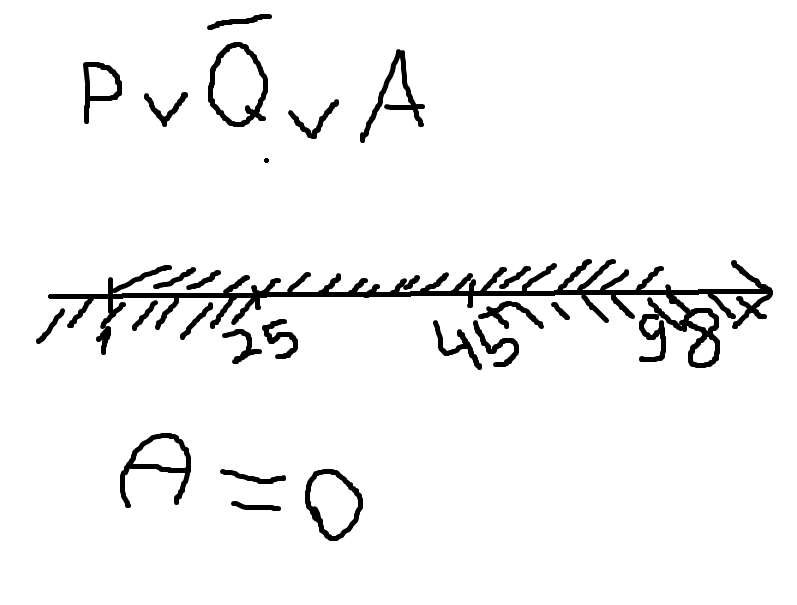 P ∨ Q̅ ∨ A
1 25 45 98
A = 0